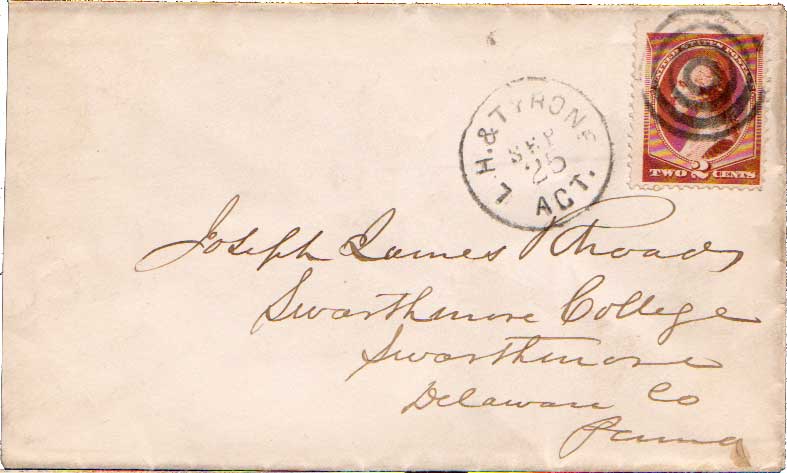 UNITED STATES POSTAGE
TWO 2 CENTS
L.H. & TYRONE
SEP
25
AGT.
Joseph James Rhoads
Swarthmore College
Swarthmore
Delaware Co
Penna